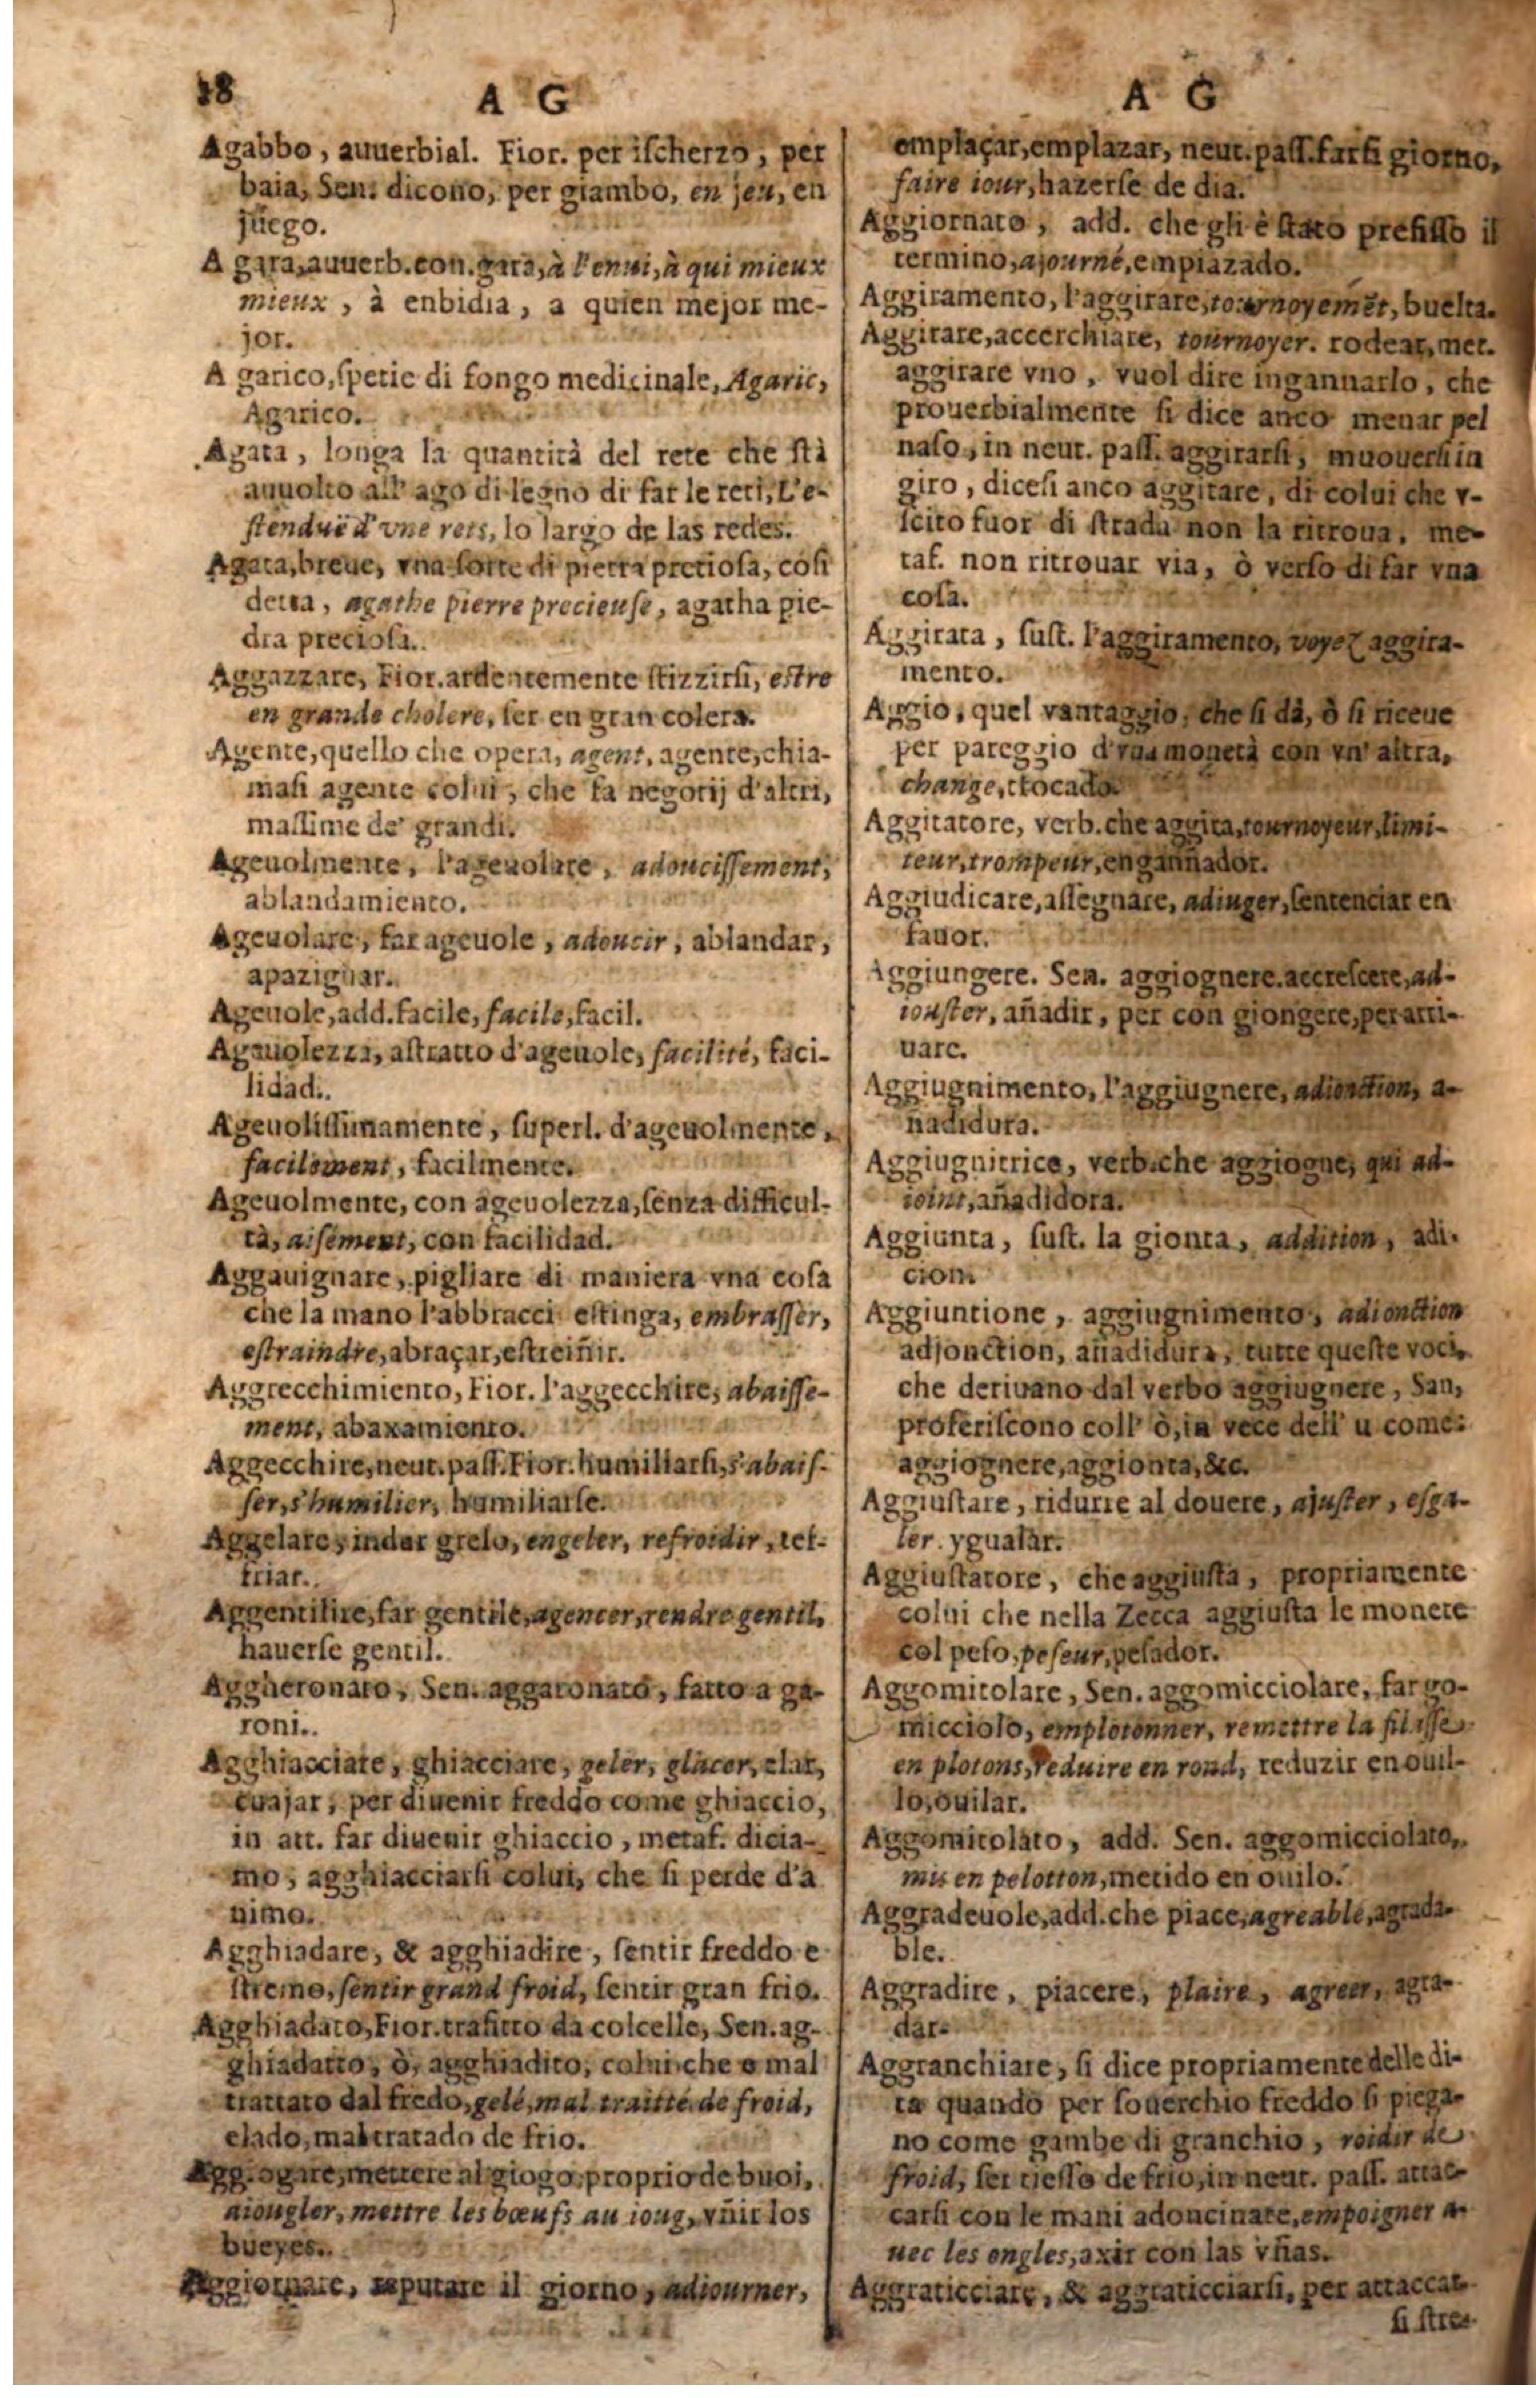 18
A G
Agabbo, auuerbial. Fior. per iſcherzo, per
baia, Sen. dicono, per giambo, en jeu, en
juego.
A gara, auuerb. con. gara, à l'enui, à qui mieux
mieux, à enbidia, a quien mejor me-
jor.
A garico, ſpetie di fongo medicinale, Agaric,
Agarico.
Agata, longa la quantità del rete che ſtà
auuolto all' ago di legno di far le reti, L'e-
ſtenduë d'vne rets, lo largo de las redes.
Agata, breue, vna ſorte di pietra pretioſa, coſi
detta, agathe pierre precieuſe, agatha pie-
dra precioſa.
Aggazzare, Fior. ardentemente ſtizzirſi, eſtre
en grande cholere, ſer en gran colera.
Agente, quello che opera, agent, agente, chia-
maſi agente colui, che fa negotij d'altri,
maſſime de' grandi.
Ageuolmente, l'ageuolare, adouciſſement,
ablandamiento.
Ageuolare, far ageuole, adoucir, ablandar,
apaziguar.
Ageuole, add. facile, facile, facil.
Ageuolezza, aſtratto d'ageuole, facilité, faci-
lidad.
Ageuoliſſimamente, ſuperl. d'ageuolmente,
facilement, facilmente.
Ageuolmente, con ageuolezza, ſenza difficul-
tà, aiſément, con facilidad.
Aggauignare, pigliare di maniera vna coſa
che la mano l'abbracci eſtinga, embraſſer,
eſtraindre, abraçar, eſtreiñir.
Aggrecchimiento, Fior. l'aggecchire, abaiſſe-
ment, abaxamiento.
Aggecchire, neut. paſſ. Fior. humiliarſi, s'abaiſ-
ſer, s'humilier, humiliarſe.
Aggelare, indar grelo, engeler, refroidir, reſ-
friar.
Aggentilire, far gentile, agencer, rendre gentil,
hauerſe gentil.
Aggheronato, Sen. aggaronato, fatto a ga-
roni.
Agghiacciare, ghiacciare, geler, glacer, elar,
cuajar, per diuenir freddo come ghiaccio,
in att. far diuenir ghiaccio, metaf. dicia-
mo, agghiacciarſi colui, che ſi perde d'a
nimo.
Agghiadare, & agghiadire, ſentir freddo e
ſtremo, ſentir grand froid, ſentir gran frio.
Agghiadato, Fior. trafitto da colcelle, Sen. ag-
ghiadatto, ò, agghiadito, colui che e mal
trattato dal fredo, gelé, mal traitté de froid,
elado, maltratado de frio.
Aggiogare, mettere al giogo, proprio de buoi,
aiougler, mettre les bœufs au ioug, vñir los
bueyes.
Aggiornare, reputare il giorno, adiourner,
A G
emplaçar, emplazar, neut. paſſ. farſi giorno,
faire iour, hazerſe de dia.
Aggiornato, add. che gli è ſtato prefiſſo il
termino, ajourné, emplazado.
Aggiramento, l'aggirare, tournoyemēt, buelta.
Aggirare, accerchiare, tournoyer. rodear, met.
aggirare vno, vuol dire ingannarlo, che
prouerbialmente ſi dice anco menar pel
naſo, in neut. paſſ. aggirarſi, muouerſi in
giro, diceſi anco aggirare, di colui che v-
ſcito fuor di ſtrada non la ritroua, me-
taf. non ritrouar via, ò verſo di far vna
coſa.
Aggirata, ſuſt. l'aggiramento, voyez aggira-
mento.
Aggio, quel vantaggio, che ſi dà, ò ſi riceue
per pareggio d'vna monetà con vn' altra,
change, trocado.
Aggiratore, verb. che aggira, tournoyeur, limi-
teur, trompeur, engannador.
Aggiudicare, aſſegnare, adiuger, ſentenciar en
fauor.
Aggiungere. Sen. aggiognere. accreſcere, ad-
iouſter, añadir, per con giongere, per arri-
uare.
Aggiugnimento, l'aggiugnere, adionction, a-
ñadidura.
Aggiugnitrice, verb. che aggiogne, qui ad-
ioint, añadidora.
Aggiunta, ſuſt. la gionta, addition, adi-
cion.
Aggiuntione, aggiugnimento, adionction
adjonction, añadidura, tutte queſte voci,
che deriuano dal verbo aggiugnere, San,
proferiſcono coll' ò, in vece dell' u come:
aggiognere, aggionta, &c.
Aggiuſtare, ridurre al douere, ajuſter, eſga-
ler. ygualar.
Aggiuſtatore, che aggiuſta, propriamente
colui che nella Zecca aggiuſta le monete
col peſo, peſeur, peſador.
Aggomitolare, Sen. aggomicciolare, far go-
micciolo, emplotonner, remettre la filaſſe
en plotons, reduire en rond, reduzir en ouil-
lo, ouilar.
Aggomitolato, add. Sen. aggomicciolato,
mis en pelotton, metido en ouilo.
Aggradeuole, add. che piace, agreable, agrada-
ble.
Aggradire, piacere, plaire, agreer, agra-
dar.
Aggranchiare, ſi dice propriamente delle di-
ta quando per ſouerchio freddo ſi piega-
no come gambe di granchio, roidir de
froid, ſer tieſſo de frio, in neut. paſſ. attac-
carſi con le mani adoncinate, empoigner a-
uec les ongles, axir con las vñas.
Aggraticciare, & aggraticciarſi, per attaccar-
ſi ſtre-